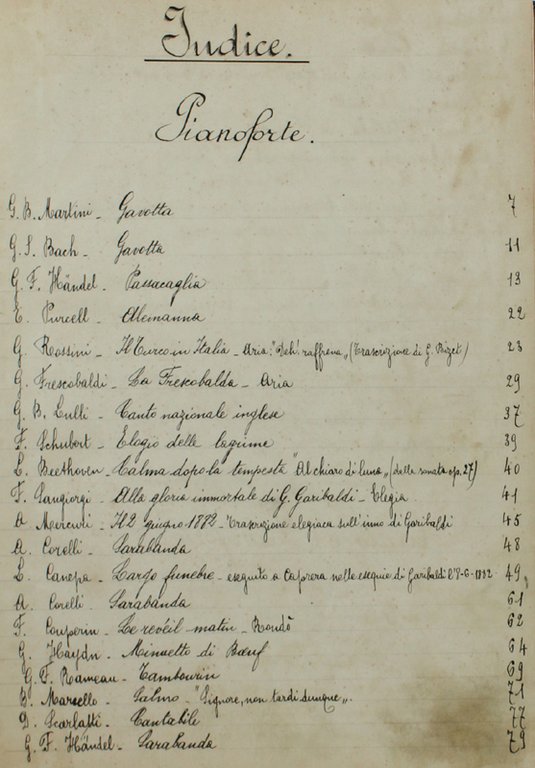 Indice.
Pianoforte.
G. B. Martini - Gavotta 7
G. S. Bach - Gavotta 11
G. F. Händel - Passacaglia 13
E. Purcell - Alemanna 22
G. Rossini - Il Turco in Italia - Aria: "Deh! raffrena" (Trascrizione di G. Bizet) 23
G. Frescobaldi - La Frescobalda - Aria 29
G. B. Lulli - Canto nazionale inglese 37
F. Schubert - Elogio delle lagrime 39
L. Beethoven - Calma dopo la tempesta "Al chiaro di luna" (della sonata op. 27) 40
F. Sangiorgi - Alla gloria immortale di G. Garibaldi - Elegia 41
A. Mercuri - Il 2 giugno 1882 - Trascrizione elegiaca sull'inno di Garibaldi 45
A. Corelli - Sarabanda 48
L. Canepa - Largo funebre - eseguito a Caprera nelle esequie di Garibaldi l'8-6-1882 - 49
A. Corelli - Sarabanda 61
F. Couperin - Le revéil matin - Rondò 62
G. Haydn - Minuetto di Bœuf 64
G. F. Rameau - Tambourin 69
B. Marcello - Salmo - "Signore, non tardi dunque". 71
D. Scarlatti - Cantabile 77
G. F. Händel - Sarabanda 79